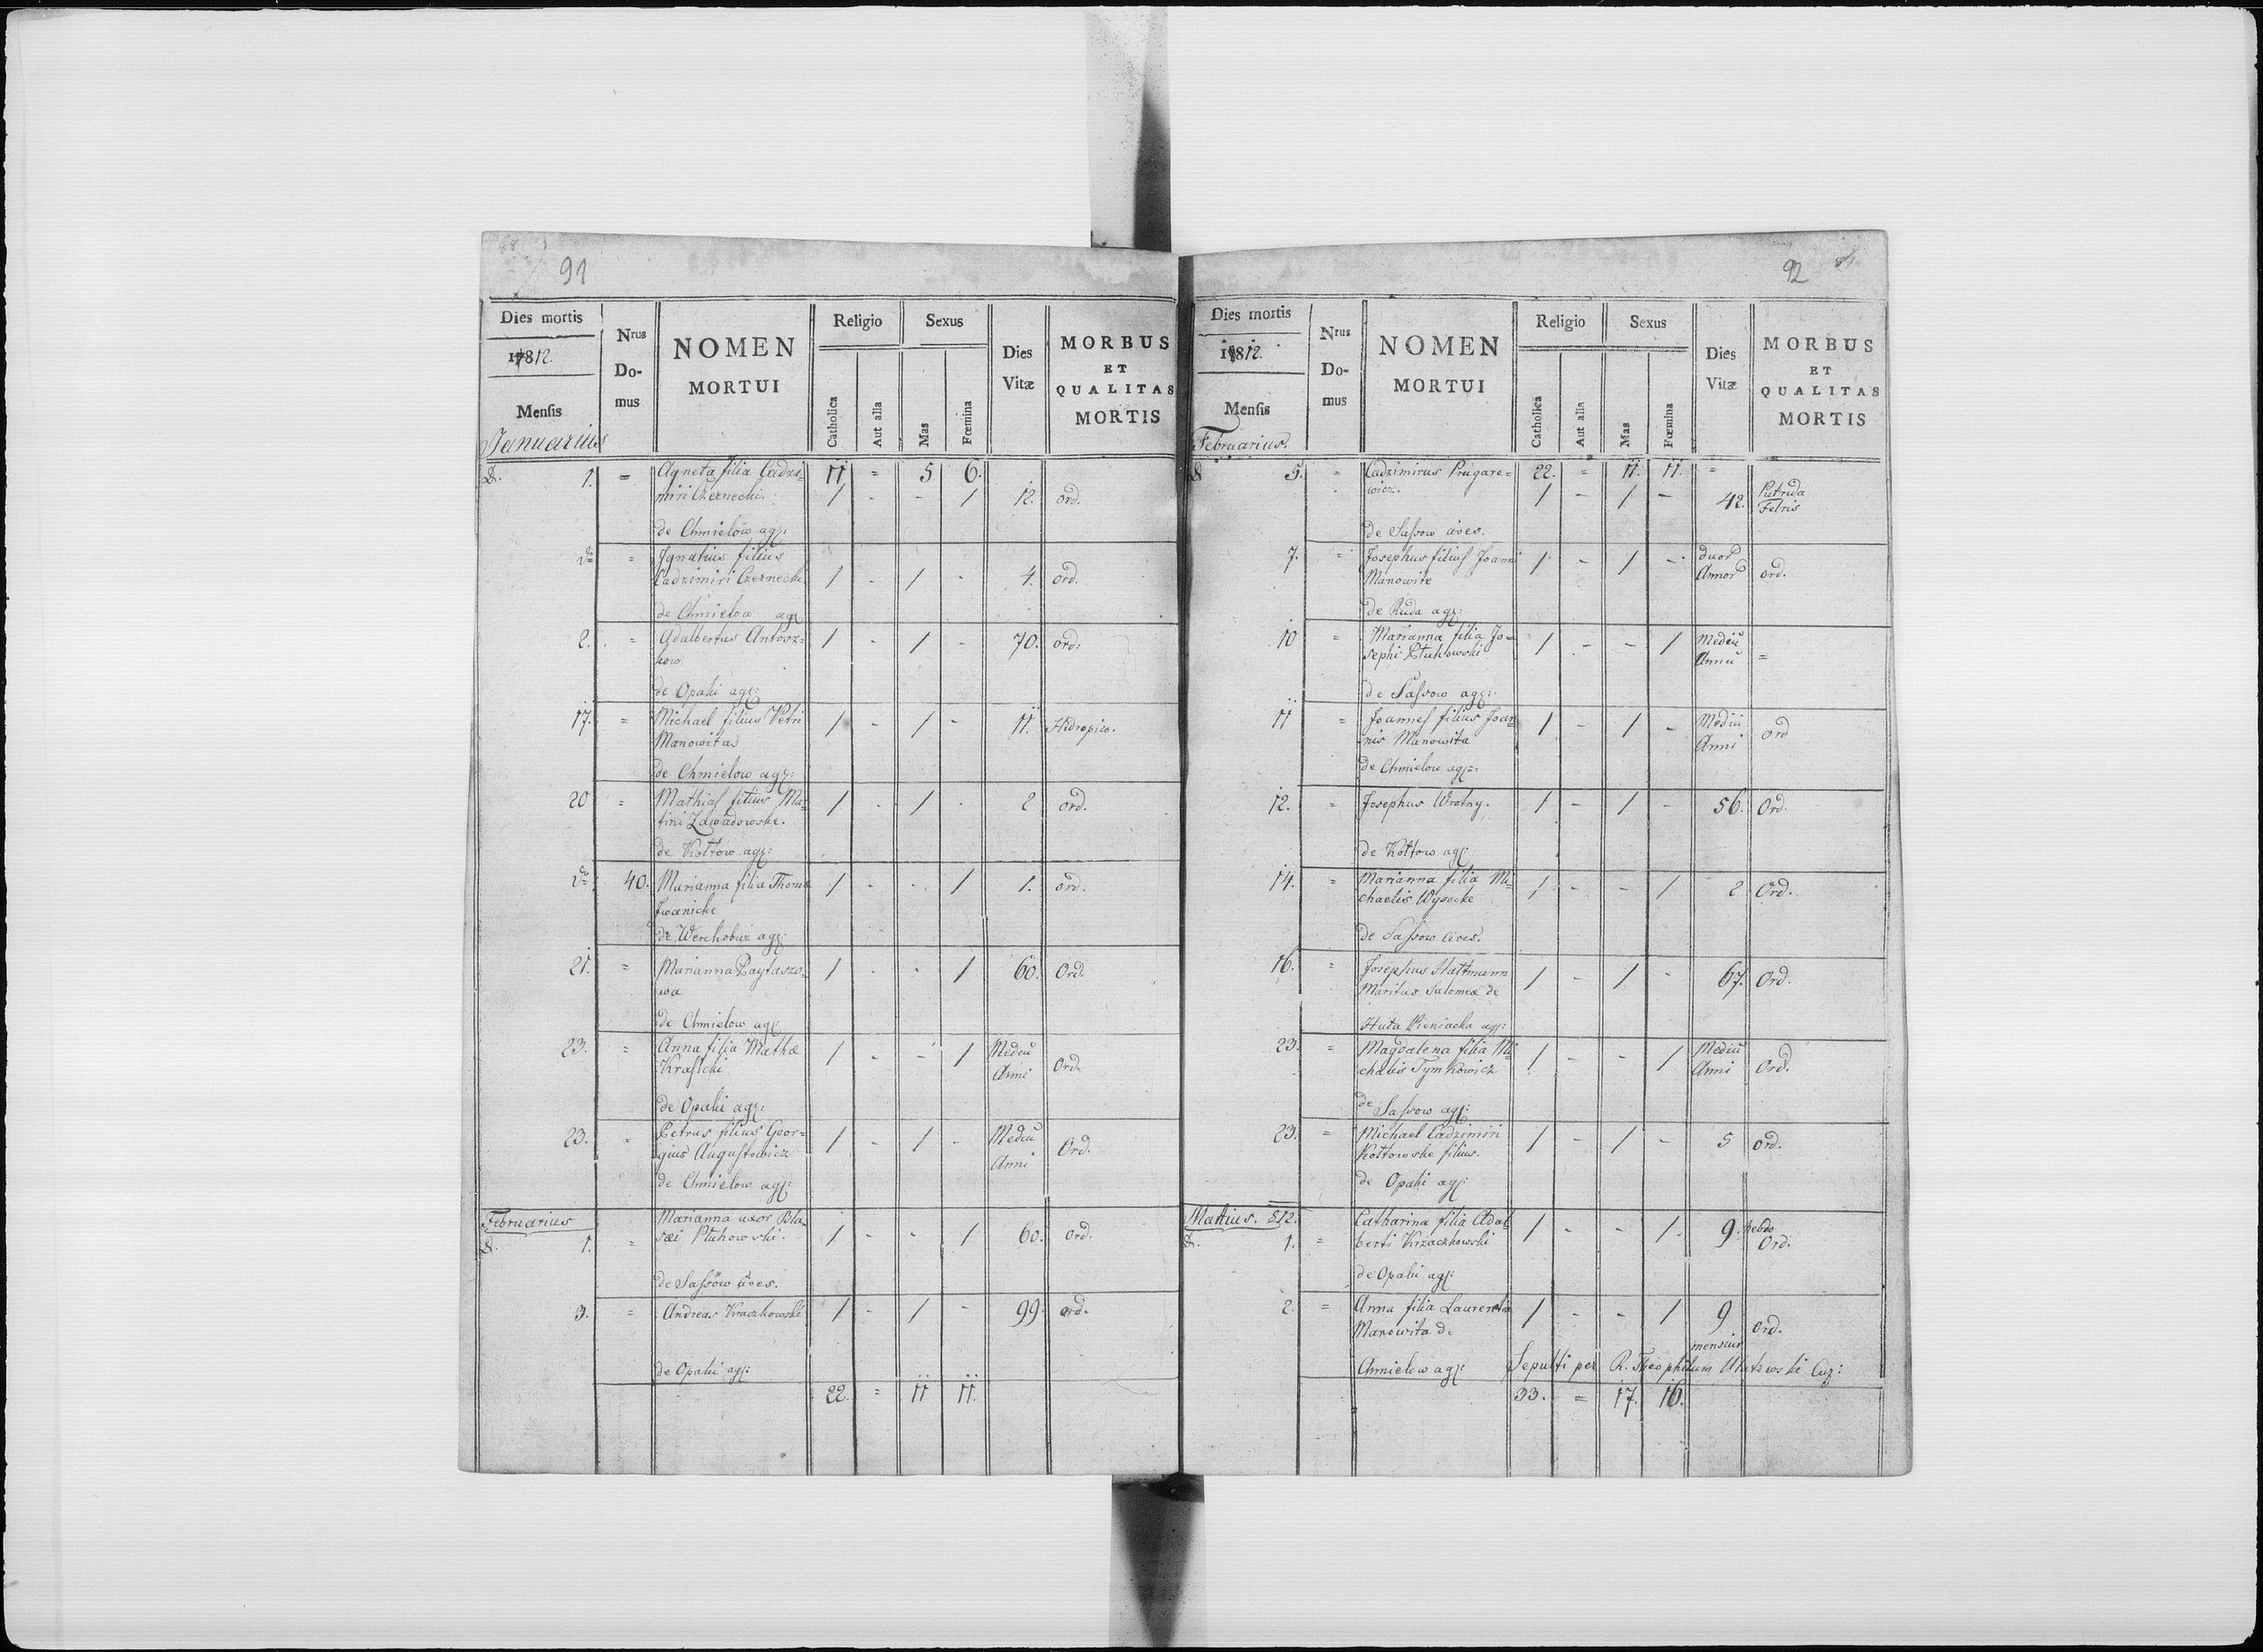 91
Dies mortis
17812.
Mensis
Januarius
Nrus
Do-
mus
NOMEN
MORTUI
Religio
Catholica
Aut alia
Sexus
Mas
Fœmina
Dies
Vitæ
MORBUS
ET
QUALITAS
MORTIS
11 = 5 6.
1. = Agneta filia Cadzi=
miri Czernecki. 1 - - 1 12. ord.
de Chmielow agr:
= Ignatius filius
Cadzimiri Czernecki 1 - 1 - 4. ord.
de Chmielow agr
2. = Adalbertus Antosz= 1 - 1 - 70. ord:
kow
de Opaki agr:
17. = Michael filius Petri 1 - 1 - 11. Hidropico.
Manowita
de Chmielow agr:
20 = Mathias filius Mar= 1 - 1 - 2 ord.
tini Zawadowski.
de Kottow agr:
40. Marianna filia Thoma 1 - - 1 1. ord.
Iwanicki
de Werchobuz agr:
21. = Marianna 1 - - 1 60. Ord.
wa
de Chmielow agr
23. = Anna filia Mathæ 1 - - 1 Mediū Ord.
Krasicki Anni
de Opaki agr:
23. = Petrus filius Geor= 1 - 1 - Mediū Ord.
gius Augustowicz Anni
de Chmielow agr:
Februarius
1. = Marianna uxor Bla=
sæi Ptuhowski. 1 - - 1 60. ord.
de Sassow cives.
3. = Andreas Kraczkowski 1 - 1 - 99 ord.
de Opaki agr:
22. = 11 11.
92
Dies mortis
1812.
Mensis
Februarius.
Nrus
Do-
mus
NOMEN
MORTUI
Religio
Catholica
Aut alia
Sexus
Mas
Fœmina
Dies
Vitæ
MORBUS
ET
QUALITAS
MORTIS
22. = 11. 11. =
5. = Cadzimirus Prugare=
wicz. 1 - 1 - 42. Putrida
Febris
de Sassow cives.
7. = Josephus filius Joann 1 - 1 - duor
Manowite Annor ord.
de Ruda agr:
10 = Marianna filia Jo= 1 - - 1 Mediū
sephi Ptuhowski Annū =
de Sassow agr:
11 = Joannes filius Joan= 1 - 1 - Medii
nis Manowita Anni ord
de Chmielow agr:
12. = Josephus Wrotny. 1 - 1 - 56. Ord.
de Kottow agr:
14. = Marianna filia Mi= 1 - - 1 2 Ord.
chaelis Wysocke
de Sassow cives.
16. = Josephus Hattmann 1 - 1 - 67. Ord.
Maritus Salomea de
Huta Pieniacka agr:
23. = Magdalena filia Mi= 1 - - 1 Mediū
chalis Tymkowicz Anni Ord.
de Sassow agr:
23. = Michael Cadzimiri 1 - 1 - 5 ord.
Kottowske filius.
de Opaki agr:
Martius. 812.
1. = Catharina filia Adal 1 - - 1. 9. hebdo
berti Krzaczkowski Ord.
de Opaki agr:
2. = Anna filia Laurentii 1 - - 1 9 ord.
Manowita de mensiū
Chmielow agr: Sepulti per R. Theophilum
33. = 17. 16.